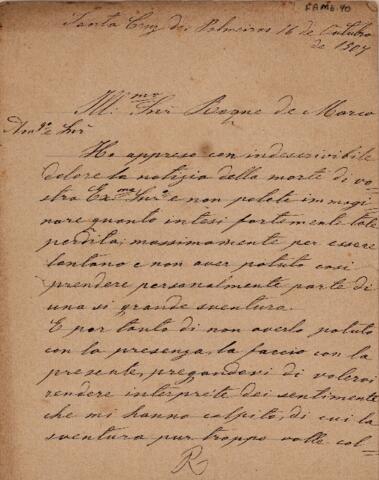 FAMB.90
Santa Cruz das Palmeiras 16 de Outubro
de 1907
Illmo Snr Roque de Marco
Amgo e Snr
Ho appreso con indescrivibile
dolore la notizia della morte di vo-
stra Exma Snra e non potete immagi-
nare quanto intesi fortemente tale
perdita; massimamente per essere
lontano e non aver potuto così
prendere personalmente parte di
una sì grande sventura.
E por tanto di non averlo potuto
con la presenza, la faccio con la
presente, pregandovi di volervi
rendere interprete dei sentimente
che mi hanno colpito, di cui la
sventura pur troppo volle col=
R